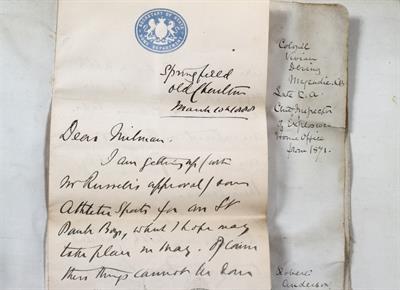 SECRETARY OF STATE
HOME DEPARTMENT
Springfield
Old Charlton
March
Dear Milman.
I am getting up (with
Mr Russell's approval) some
Athletic Sports for our St
Pauls Boys, which I hope may
take place in May. Of course
these things cannot be done
Colonel
Vivian
Dering
Majendie, C.B.
Late R.A.
Chief Inspector
of Explosives
Home Office
from 1871.
Robert
Anderson